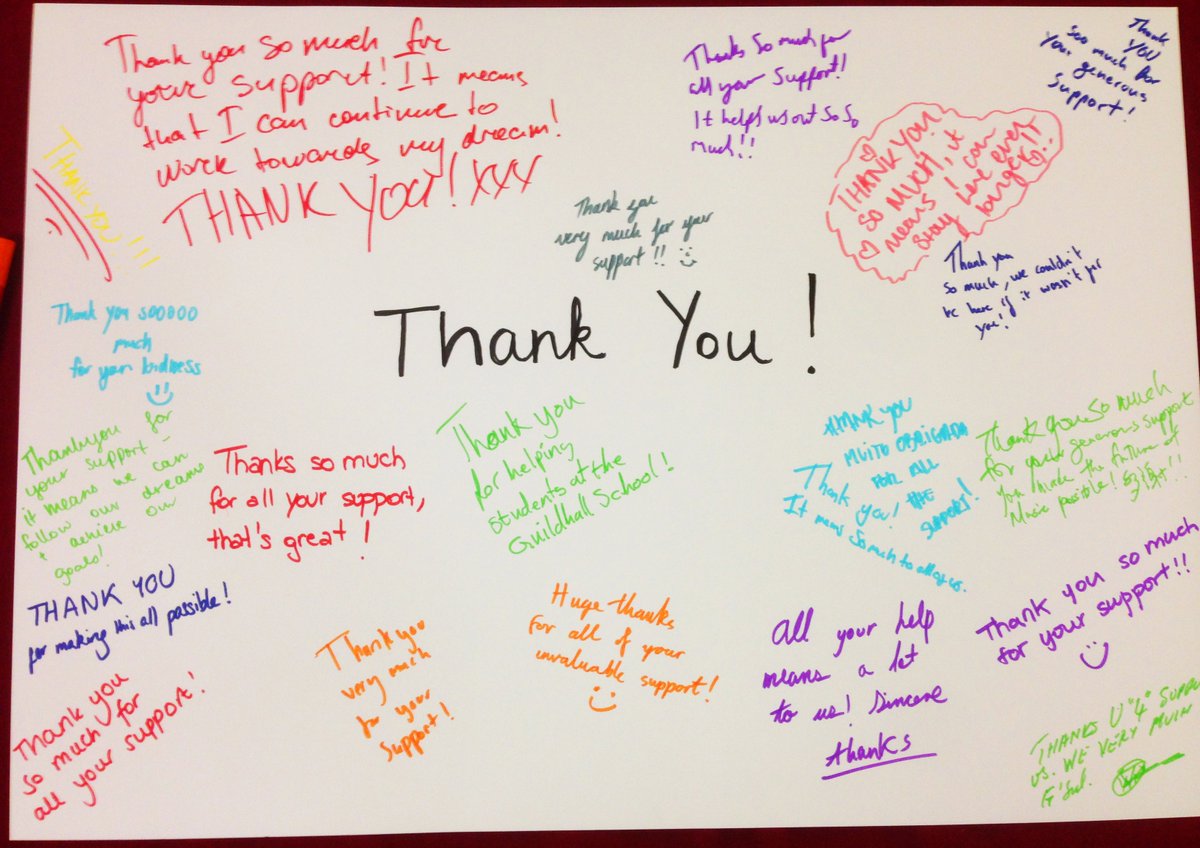 Thank you so much for
your support! It means
that I can continue to
work towards my dream!
THANK YOU! XXX
Thanks so much for
all your support!
It helps us out so so
much!!
Thank
YOU
soo much for
your generous
support!
THANK YOU!!!
Thank you
very much for your
support!!
THANK YOU
SO MUCH, it
means I can
stay here even
longer!!
Thank you
so much, we couldn't
be here if it wasn't for
you!
Thank you sooooo
much
for your kindness
Thank You!
Thankyou for
your support -
it means we can
follow our dreams
+ achieve our
goals!
Thanks so much
for all your support,
that's great!
Thank you
for helping
students at the
Guildhall School!
THANK YOU
MUITO OBRIGADA
FOR ALL
THE
SUPPORT!
Thank you!
It means so much to all of us.
Thank you so much
for your generous support
You make the future of
Music possible! !!
THANK YOU
for making this all possible!
Thank you
so much for
all your support!
Thank you
very much
for your
support!
Huge thanks
for all of your
invaluable support!
All your help
means a lot
to us! Sincere
thanks
Thank you so much
for your support!!
THANKS U "4" SUPPO
US. WE VERY MUCH